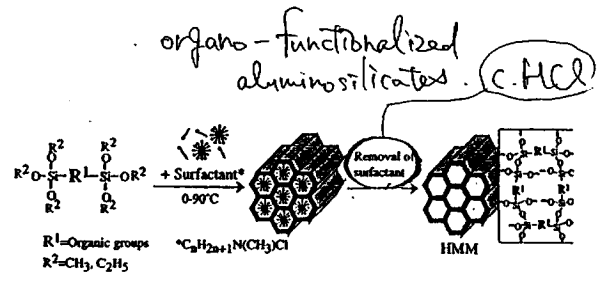 organo-functionalized
aluminosilicates. C.HCl
R²O-Si-R¹-Si-OR²
OR² OR²
OR² OR²
+ Surfactant*
0-90°C
Removal of
surfactant
HMM
R¹=Organic groups
R²=CH₃, C₂H₅
*CₙH₂ₙ₊₁N(CH₃)Cl